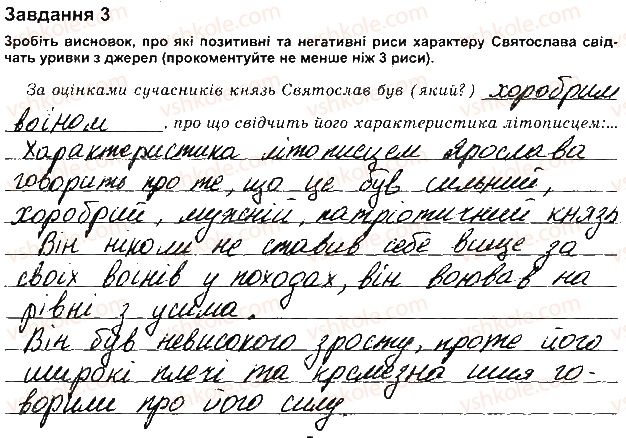 Завдання 3
Зробіть висновок, про які позитивні та негативні риси характеру Святослава свід-
чать уривки з джерел (прокоментуйте не менше ніж 3 риси).
За оцінками сучасників князь Святослав був (який?) хоробрим
воїном, про що свідчить його характеристика літописцем:...
Характеристика літописцем Ярослава
говорить про те, що це був сильний,
хоробрий, мужній, патріотичний князь
Він ніколи не ставив себе вище за
своїх воїнів у походах, він воював на
рівні з усіма.
Він був невисокого зросту, проте його
широкі плечі та кремезна шия го-
ворили про його силу.